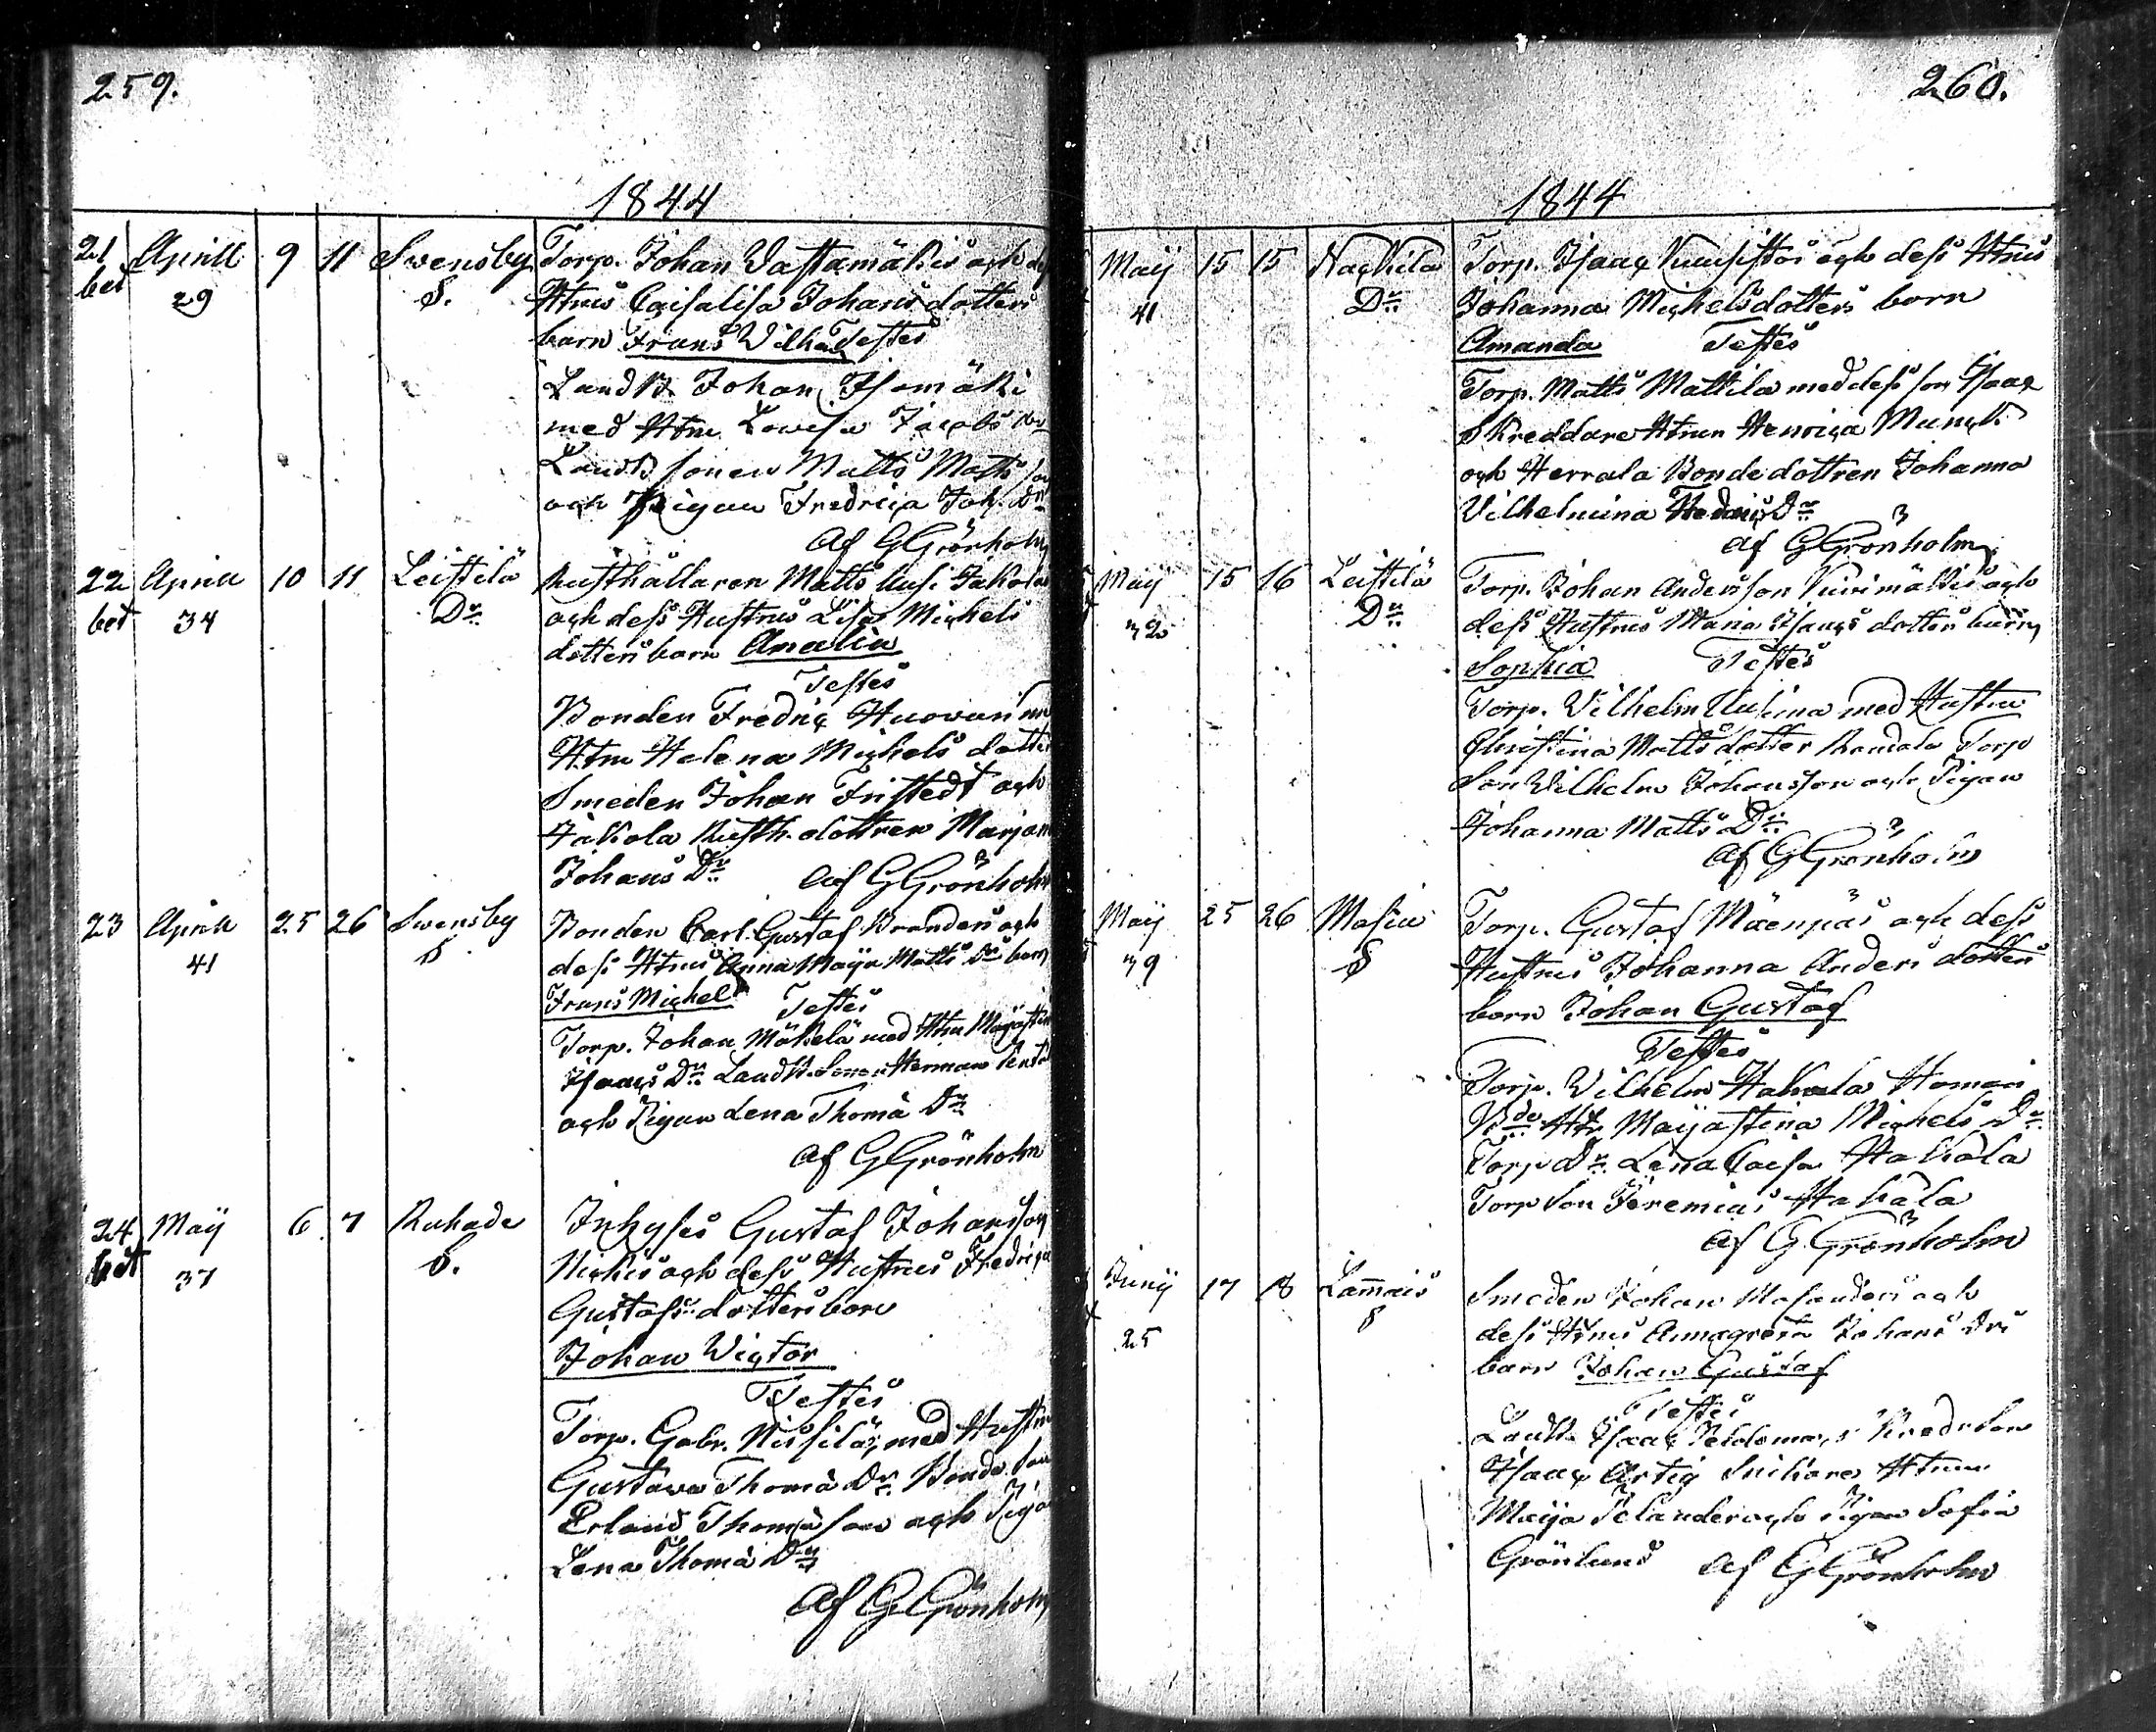 259.
1844
21 Aprill 9 11 Swensby Torp. Johan Vastamäkis och
bet 29 S. Htrus Caisalisa Johans dotters
barn Frans Vilh. Testes
Landb. Johan Isomäki
med Htru Lowisa Jacobs
Landb. sonen Matts Matts son
och Pigan Fredrica Joh. Dr
af G Grönholm
22 Aprill 10 11 Leistilä Rusthållaren Matts Jakola
bet 34 Dr och dess Hustrus Lisa Michels
dotters barn Amalia
Testes
Bonden Fredric Huovari
Htru Helena Michels dotter
Smeden Johan Fristedt och
Jakola Rusth. dottren Marjana
Johans Dr af G Grönholm
23 Aprill 25 26 Swensby Bonden Carl Gustaf Branders och
41 S dess Htrus Anna Maija Matts Drs barn
Frans Michel Testes
Torp. Johan Mäkelä med Htru Majastina
Isaacs Dr Landb. Sonen Herman
och Pigan Lena Thomä Dr
af G Grönholm
24 Maij 6 7 Ruhade Inhyses Gustaf Johansson
bet 37 S. och dess Hustrus Fredrica
Gustafs dotters barn
Johan Victor
Testes
Torp. Gabr. Nissilä med Hustru
Gustava Thomä Dr Bonde Son
Erland Thomä son och Piga
Lena Thomä Dr
af G Grönholm
260.
1844
Maij 15 15 Nackila Torp. Isaac och dess Htrus
41 Dr Johanna Michelsdotters barn
Amanda Testes
Torp. Matts Mattila med dess son Isaac
Skreddare Htrun Henrica Munck
och Herrala Bonde dottren Johanna
Vilhelmina Dr
af G Grönholm
Maij 15 16 Leistilä Torp. Johan Andersson och
32 Dr dess Hustrus Maria Isaacs dotters barn
Sophia Testes
Torp. Vilhelm med Hustru
Christina Matts dotter Torp
Son Wilhelm Johansson och Pigan
Johanna Matts Dr
af G Grönholm
Maij 25 26 Masia Torp. Gustaf Mäenpäs och dess
39 S Hustrus Johanna Anders dotters
barn Johan Gustaf
Testes
Torp. Vilhelm Hakala
Maijastina Michels Dr
Torp Dr Lena Caisa Hakala
Torp Son Jeremias Hakala
af G Grönholm
Junij 17 18 Lammais Smeden Johan och
25 S dess Htrus Annagreta Johans Drs
barn Johan Gustaf
Testes
Landb. Isaac
Isaac Artig Htrun
Maija och Pigan Sofia
Grönlund af G Grönholm